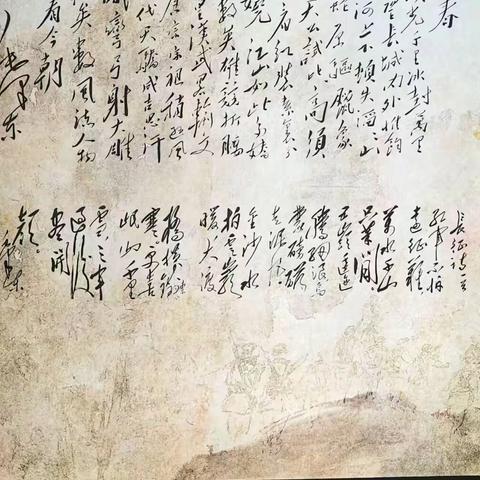 春
光千里冰封万里
望长城内外惟余
河上下顿失滔滔山
蛇原驱腊象
天公试比高须
看红装素裹分
娆江山如此多娇
数英雄竞折腰
皇汉武略输文
唐宗宋祖稍逊风
代天骄成吉思汗
弯弓射大雕
矣数风流人物
看今朝
毛泽东
长征诗一首
红军不怕
远征难
万水千山
只等闲
五岭逶迤
腾细浪乌
蒙磅礴
走泥丸
金沙水
拍云崖
暖大渡
桥横铁索
寒更喜
岷山千里
雪三军
过后
尽开
颜
毛泽东